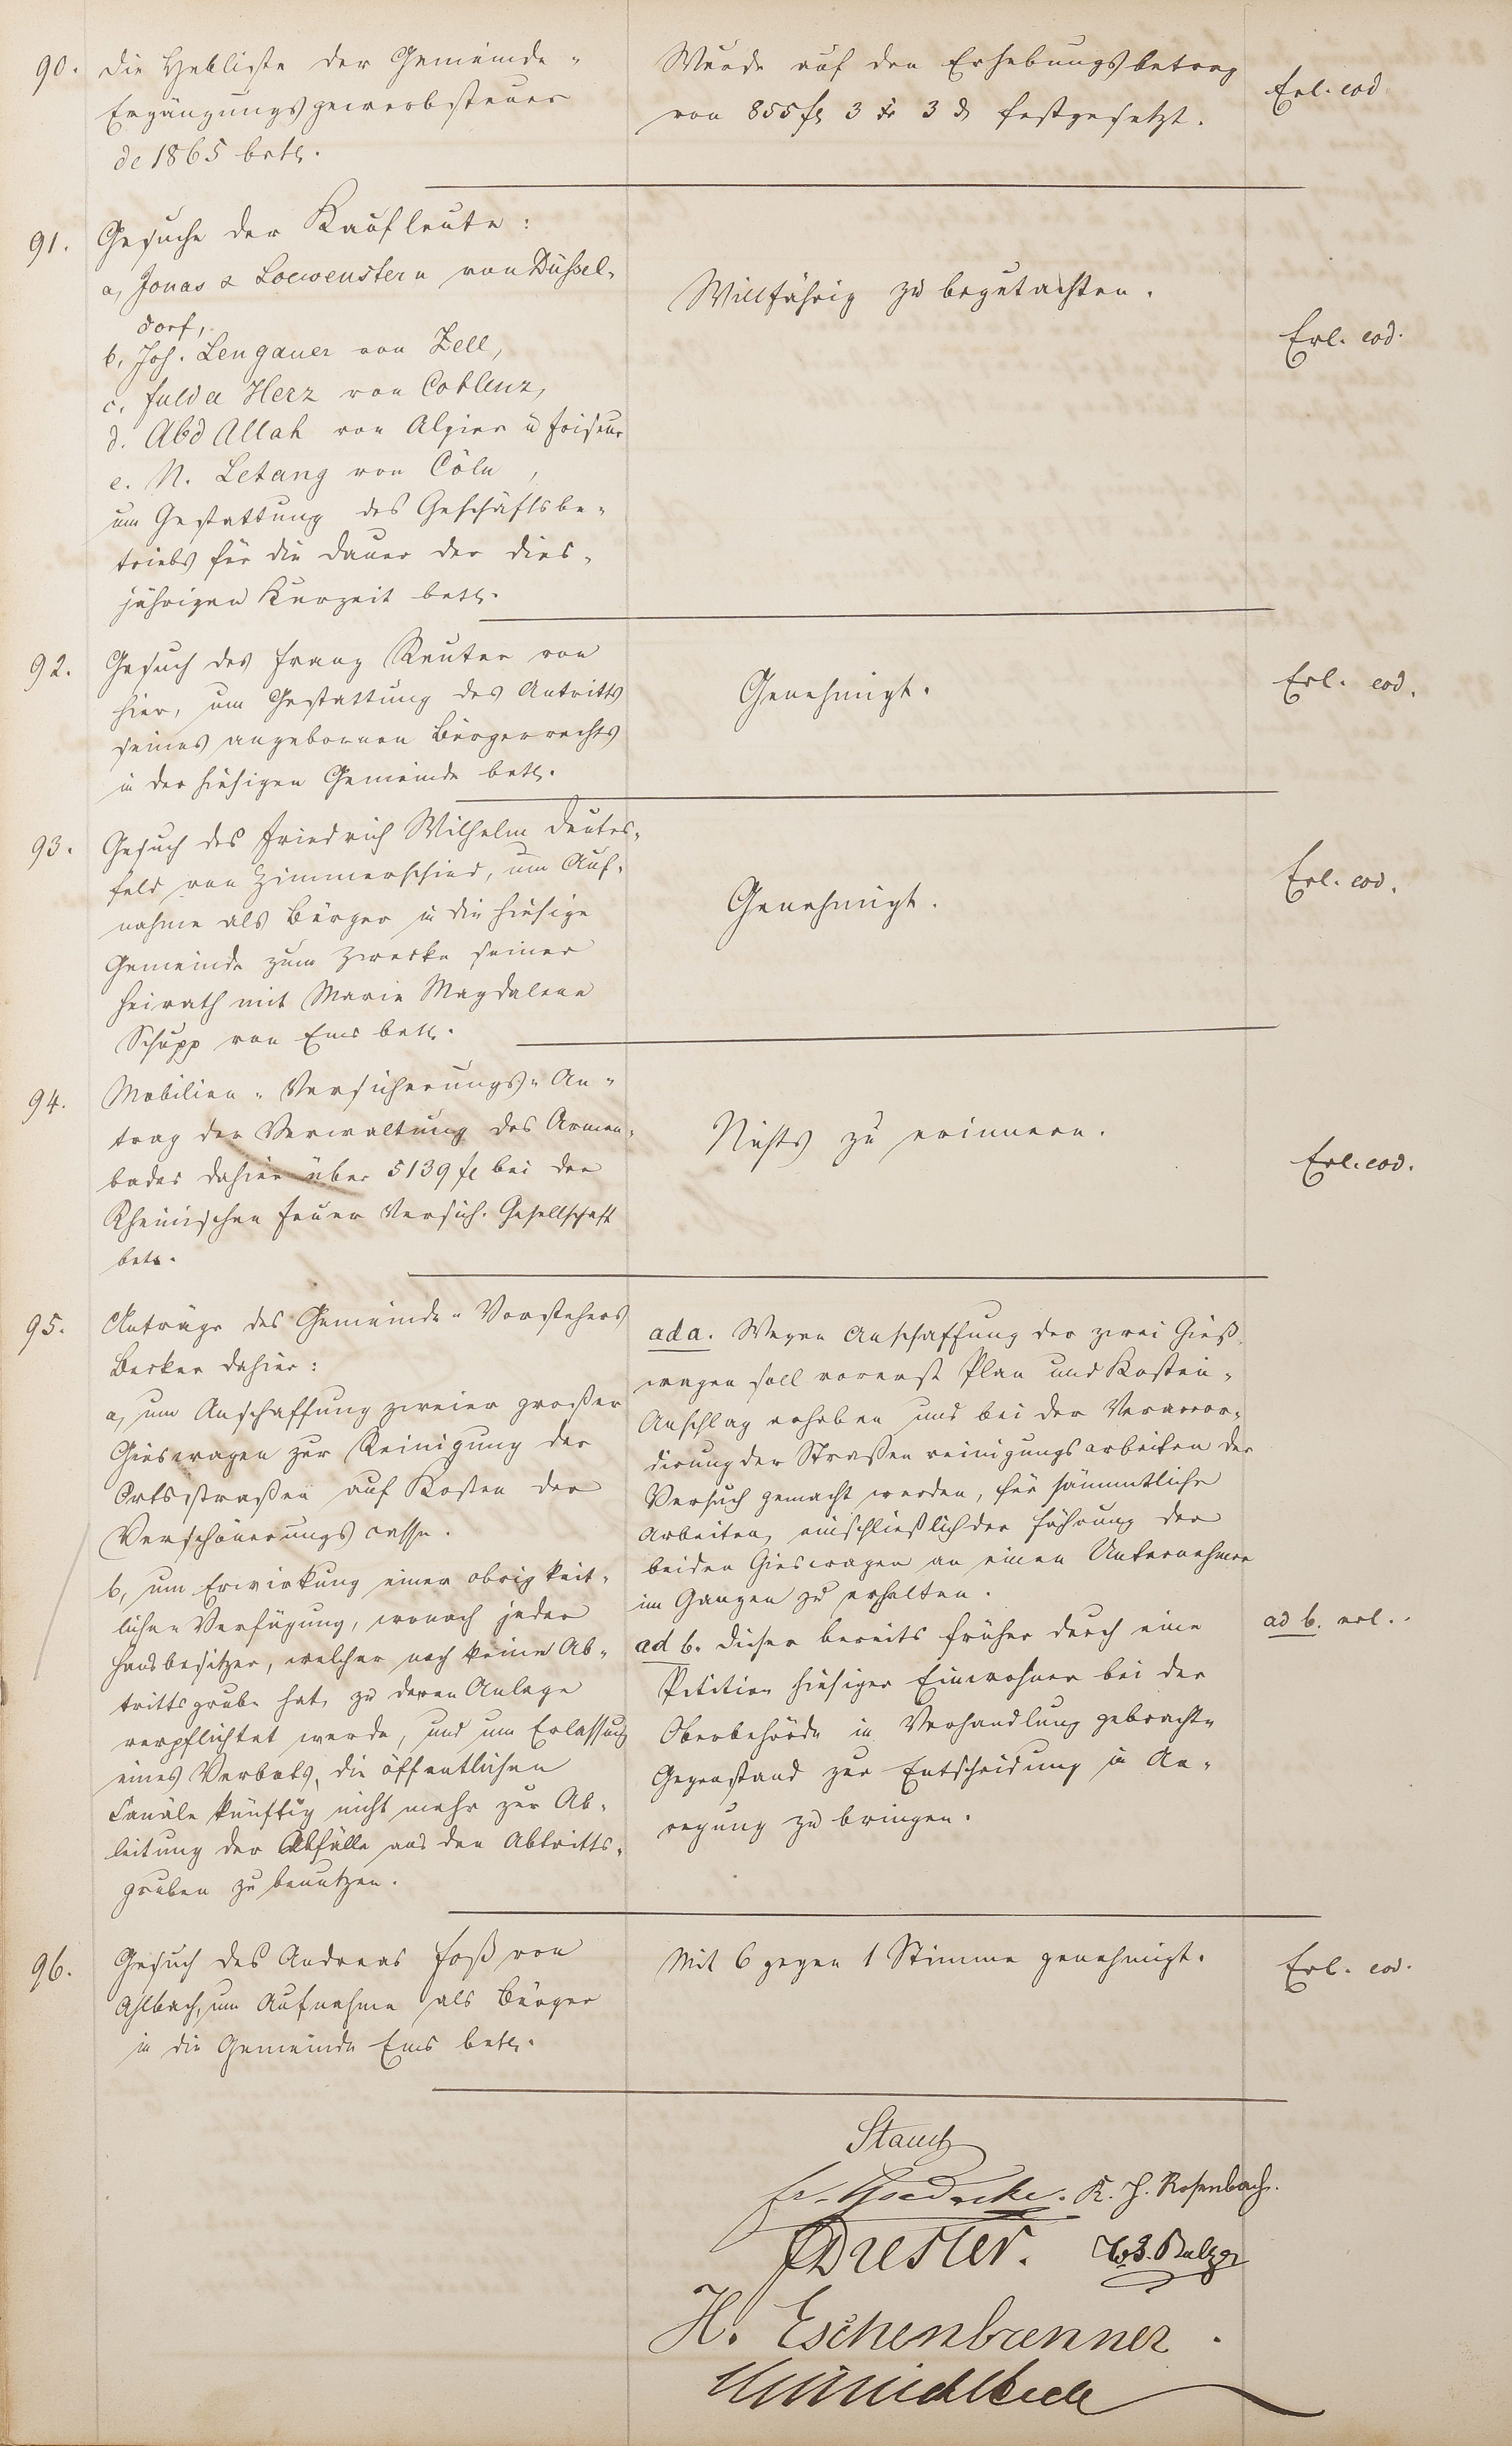 90. Die Hebliste der Gemeinde-
Ergänzungsgewerbsteuer
de 1865 betr.
Wurde auf den Erhebungsbetrag
von 855 fl 3 xr 3 d festgesetzt.
Erl. eod.
91. Gesuche der Kaufleute:
a, Jonas & Loewenstern von Düssel-
dorf,
b, Joh. Lengauer von Zell,
c, Fulda Herz von Coblenz,
d. Abd Allah von Algier u Friseur
e. N. Letang von Cöln,
um Gestattung des Geschäftsbe-
triebs für die Dauer der dies-
jährigen Kurzeit betr.
Willfährig zu begutachten.
Erl. eod.
92. Gesuch des Franz Reuter von
hier, um Gestattung des Antritts
seines angebornen Bürgerrechts
in der hiesigen Gemeinde betr.
Genehmigt.
Erl. eod.
93. Gesuch des Friedrich Wilhelm Deutes-
feld von Zimmerschied, um Auf-
nahme als Bürger in die hiesige
Gemeinde zum Zwecke seiner
Heirath mit Marie Magdalene
Schupp von Ems betr.
Genehmigt.
Erl. eod.
94. Mobilien-Versicherungs-An-
trag der Verwaltung des Armen-
bades dahier über 5139 fl bei der
Rheinischen Feuer Versich. Gesellschaft
betr.
Nichts zu erinnern.
Erl. eod.
95. Anträge des Gemeinde-Vorstehers
Becker dahier:
a, um Anschaffung zweier großer
Gieswagen zur Reinigung der
Ortsstraßen auf Kosten der
Verschönerungscasse.
b, um Erwirkung einer obrigkeit-
lichen Verfügung, wonach jeder
Hausbesitzer, welcher noch keine Ab-
trittsgrube hat, zu deren Anlage
verpflichtet werde, und um Erlassung
eines Verbots, die öffentlichen
Canäle künftig nicht mehr zur Ab-
leitung der Abfälle aus den Abtritts-
gruben zu benutzen.
ad a. Wegen Anschaffung der zwei Gieß-
wagen soll vorerst Plan und Kosten-
Anschlag erhoben und bei der Veraccor-
dirung der Straßenreinigungsarbeiten der
Versuch gemacht werden, für sämmtliche
Arbeiten, einschließlich der Führung der
beiden Gieswagen an einen Unternehmer
im Ganzen zu erhalten.
ad b. Dieser bereits früher durch eine
Petition hiesiger Einwohner bei der
Oberbehörde in Verhandlung gebrachte
Gegenstand zur Entscheidung in An-
regung zu bringen.
ad b. erl.
96. Gesuch des Andreas Foß von
Ahlbach, um Aufnahme als Bürger
in die Gemeinde Ems betr.
Mit 6 gegen 1 Stimme genehmigt.
Erl. eod.
Stauch
K. J. Rosenbach.
Balzer
H. Eschenbrenner.